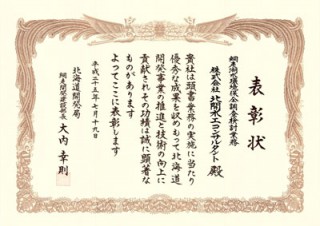 表彰状
網走湖環境保全調査検討業務
株式会社 北開水工コンサルタント 殿
貴社は頭書業務の実施に当たり
優秀な成果を収めもって北海道
開発事業の推進と技術の向上に
貢献されその功績は誠に顕著な
ものがあります
よってここに表彰します
平成二十五年七月十九日
北海道開発局
網走開発建設部長 大内 幸則